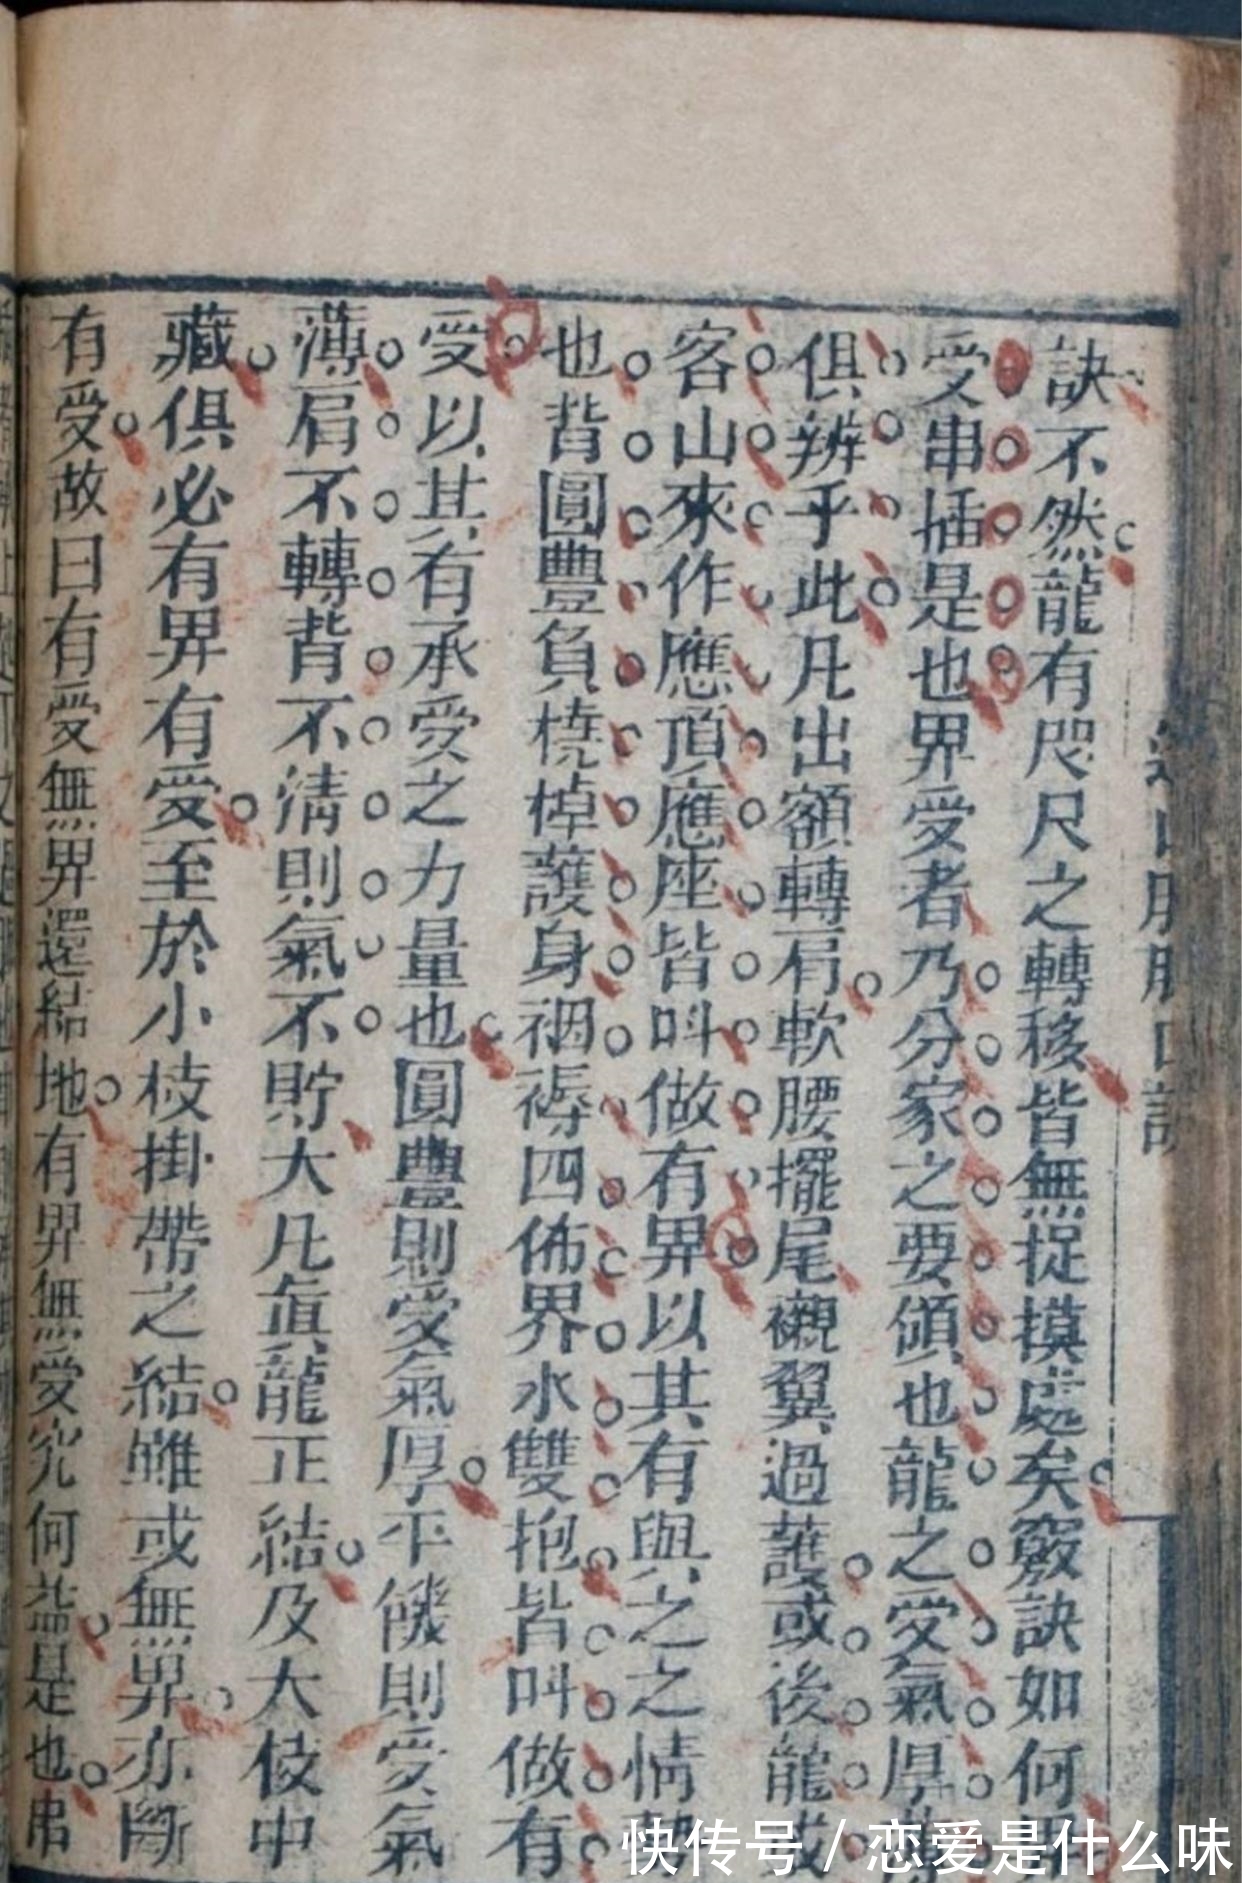 訣不然龍有咫尺之轉移皆無捉摸處矣竅訣如何
受串插是也界受者乃分家之要領也龍之受氣厚
俱辨乎此凡出額轉肩軟腰擺尾襯翼過護或後龍或
客山來作應頂應座皆叫做有界以其有與之之情
也背圓豐負橈棹護身裀褥四佈界水雙抱皆叫做有
受以其有承受之力量也圓豐則受氣厚平饑則受氣
薄肩不轉背不清則氣不貯大凡眞龍正結及大枝中
藏俱必有界有受至於小枝掛帶之結雖或無界亦斷
有受故曰有受無界還結地有界無受究何益是也串
快传号 / 恋爱是什么味